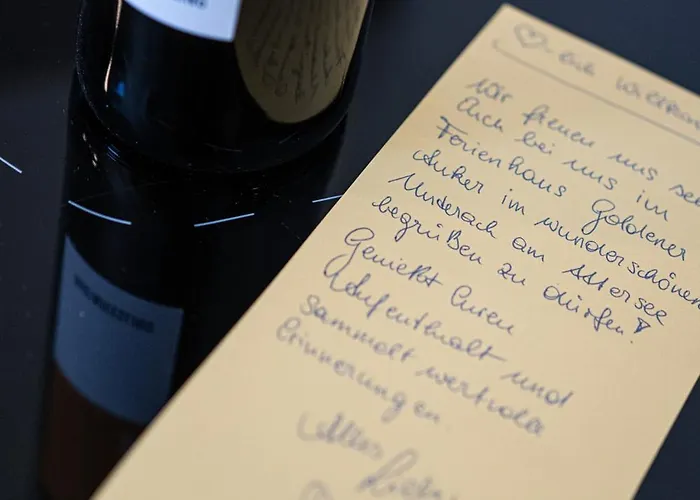 Wir freuen uns
Euch bei uns im
Ferienhaus Goldener
Anker im wunderschönen
Unterach am Attersee
begrüßen zu dürfen!
Genießt Euren
Aufenthalt und
sammelt wertvolle
Erinnerungen.
Alles